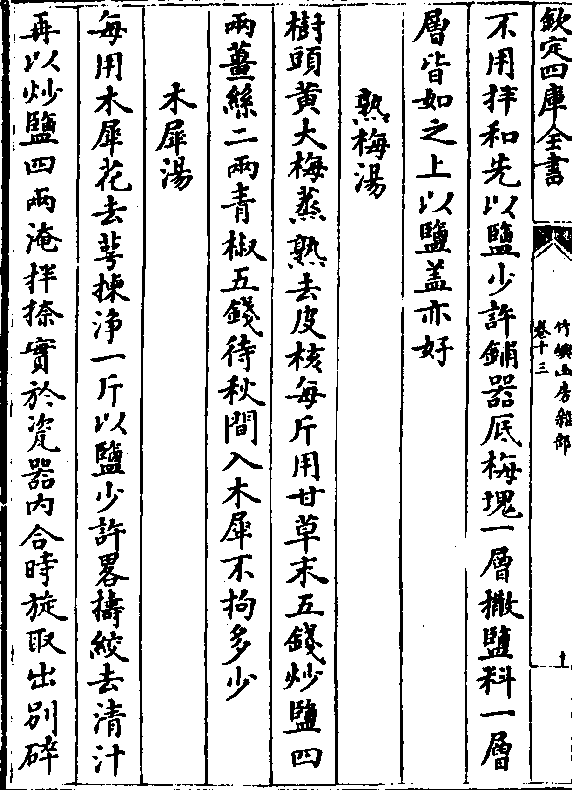 欽定四庫全書
竹嶼山房雜部
卷十三
十
不用拌和先以鹽少許鋪器底梅塊一層撒鹽料一層
層皆如之上以鹽盖亦好
熟梅湯
樹頭黄大梅蒸熟去皮核每斤用甘草末五錢炒鹽四
兩薑絲二兩青椒五錢待秋間入木犀不拘多少
木犀湯
每用木犀花去萼揀净一斤以鹽少許畧擣絞去清汁
再以炒鹽四兩淹拌捺實於瓷器内合時旋取出别碎